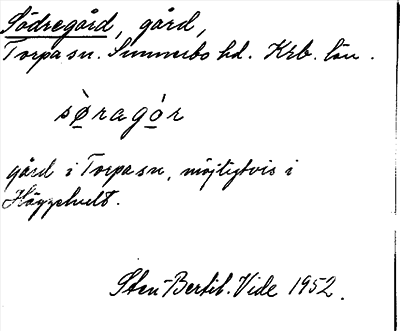 Södregård, gård,
Torpa sn. Sunnerbo hd. Krb. län.
sø̀ragór
gård i Torpa sn, möjligtvis i
Häggehult.
Sten-Bertil Vide 1952.